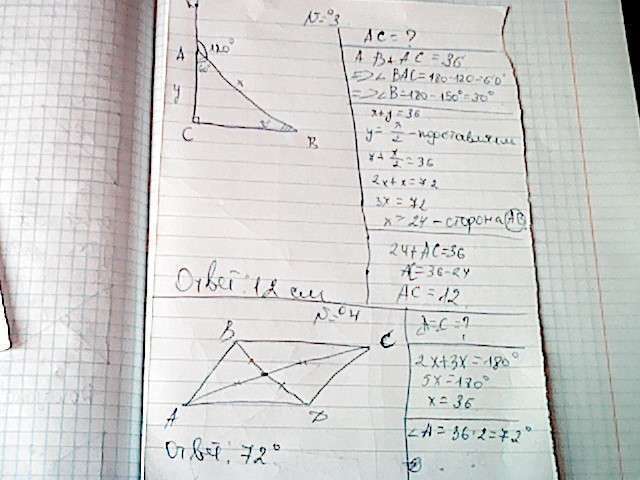 N=º3
A
120°
y
x
C
B
AC = ?
AB+AC=36
=> ∠BAC=180-120=60°
=> ∠B=180-150°=30°
x+y=36
y=x/2-подставляем
x+x/2=36
2x+x=72
3x=72
x=24-сторона AB
24+AC=36
AC=36-24
AC=12
Ответ: 12 см
N=º4
B
C
A
D
∠A=∠C=?
2x+3x=180°
5x=180°
x=36
∠A=36·2=72°
Ответ: 72°